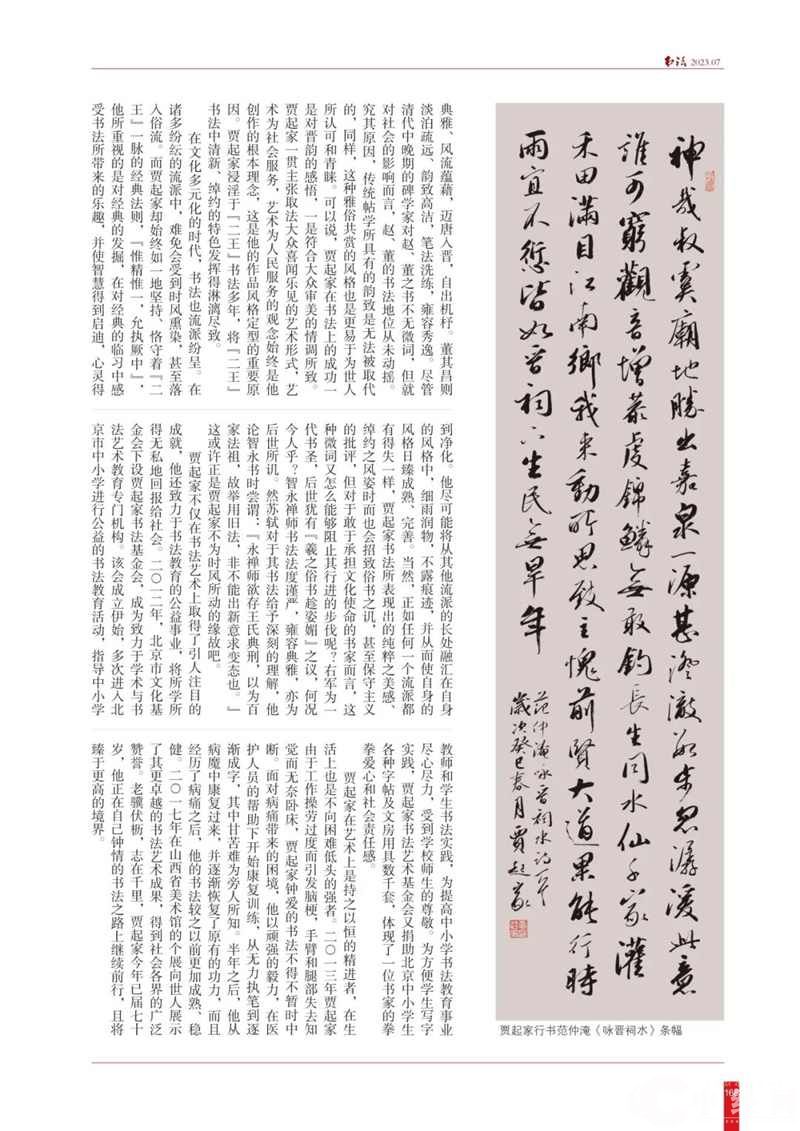 书法 2023.07
神哉叔虞廟地勝出嘉泉一源甚澄澈數步忽潺湲此意
誰可窮觀音增恭虔錦鱗無敢釣長生同水仙千家灌
禾田滿目江南鄉我來動所思致主愧前賢大道果能行時
雨宜不愆皆如晉祠下生民無旱年
范仲淹詠晉祠水詩一首
歲次癸巳春月賈起家
贾起家行书范仲淹《咏晋祠水》条幅
典雅、风流蕴藉，迈唐入晋，自出机杼。董其昌则
淡泊疏远、韵致高洁，笔法洗练，雍容秀逸。尽管
清代中晚期的碑学家对赵、董之书不无微词，但就
对社会的影响而言，赵、董的书法地位从未动摇。
究其原因，传统帖学所具有的韵致是无法被取代
的，同样，这种雅俗共赏的风格也是更易于为世人
所认可和青睐。可以说，贾起家在书法上的成功一
是对晋韵的感悟，一是符合大众审美的情调所致。
贾起家一贯主张取法大众喜闻乐见的艺术形式，艺
术为社会服务，艺术为人民服务的观念始终是他
创作的根本理念，这是他的作品风格定型的重要原
因。贾起家浸淫于『二王』书法多年，将『二王』
书法中清新、绰约的特色发挥得淋漓尽致。
在文化多元化的时代，书法也流派纷呈。在
诸多纷纭的流派中，难免会受到时风熏染，甚至落
入俗流。而贾起家却始终如一地坚持、恪守着『二
王』一脉的经典法则，『惟精惟一，允执厥中』，
他所重视的是对经典的发掘，在对经典的临习中感
受书法所带来的乐趣，并使智慧得到启迪，心灵得
到净化。他尽可能将从其他流派的长处融汇在自身
的风格中，细雨润物，不露痕迹，并从而使自身的
风格日臻成熟、完善。当然，正如任何一个流派都
有得失一样，贾起家书法所表现出的纯粹之美感、
绰约之风姿时而也会招致俗书之讥，甚至保守主义
的批评，但对于敢于承担文化使命的书家而言，这
种微词又怎么能够阻止其行进的步伐呢？右军为一
代书圣，后世犹有『羲之俗书趁姿媚』之议，何况
今人乎？智永禅师书法法度谨严，雍容典雅，亦为
后世所讥。然苏轼对于其书法给予深刻的理解，他
论智永书时尝谓：『永禅师欲存王氏典刑，以为百
家法祖，故举用旧法，非不能出新意求变态也。』
这或许正是贾起家不为时风所动的缘故吧。
贾起家不仅在书法艺术上取得了引人注目的
成就，他还致力于书法教育的公益事业，将所学所
得无私地回报给社会。二〇一二年，北京市文化基
金会下设贾起家书法基金会，成为致力于学术与书
法艺术教育专门机构。该会成立伊始，多次进入北
京市中小学进行公益的书法教育活动，指导中小学
教师和学生书法实践，为提高中小学书法教育事业
尽心尽力，受到学校师生的尊敬。为方便学生写字
实践，贾起家书法艺术基金会又捐助北京中小学生
各种字帖及文房用具数千套，体现了一位书家的拳
拳爱心和社会责任感。
贾起家在艺术上是持之以恒的精进者，在生
活上也是不向困难低头的强者。二〇一三年贾起家
由于工作操劳过度而引发脑梗，手臂和腿部失去知
觉而无奈卧床，贾起家钟爱的书法不得不暂时中
断。面对病痛带来的困境，他以顽强的毅力，在医
护人员的帮助下开始康复训练，从无力执笔到逐
渐成字，其中甘苦难为旁人所知。半年之后，他从
病魔中康复过来，并逐渐恢复了原有的功力，而且
经历了病痛之后，他的书法较之以前更加成熟、稳
健。二〇一七年在山西省美术馆的个展向世人展示
了其更卓越的书法艺术成果，得到社会各界的广泛
赞誉。老骥伏枥，志在千里，贾起家今年已届七十
岁，他正在自己钟情的书法之路上继续前行，且将
臻于更高的境界。